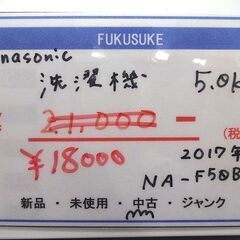 FUKUSUKE
anasonic
洗濯機 5.0k
21,000 -
(税
¥18000
2017年
NA-F50B
新品・未使用・中古・ジャンク